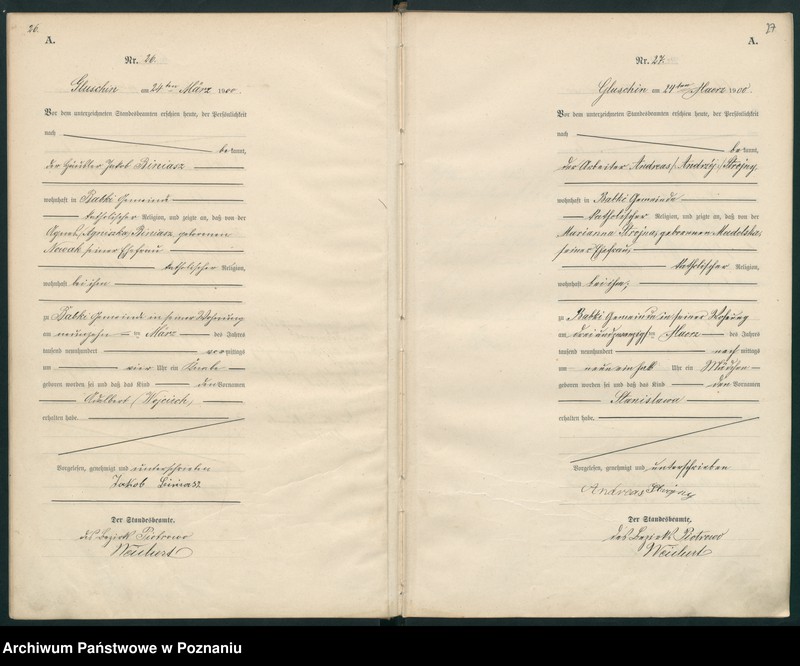 26.
A.
Nr. 26.
Gluschin am 24ten März 1900.
Vor dem unterzeichneten Standesbeamten erschien heute, der Persönlichkeit
nach
bekannt,
der Häusler Jakob Biniasz
wohnhaft in Babki Gemeinde
katholischer Religion, und zeigte an, daß von der
Agnes, Agnieska, Biniasz, geborenen
Nowak seiner Ehefrau
katholischer Religion,
wohnhaft bei ihm
zu Babki Gemeinde in seiner Wohnung
am neunzehnten März des Jahres
tausend neunhundert vormittags
um vier Uhr ein Knabe
geboren worden sei und daß das Kind den Vornamen
Adalbert (Wojciech)
erhalten habe.
Vorgelesen, genehmigt und unterschrieben
Jakob Biniasz
Der Standesbeamte.
des Bezirk Piotrowo
Weichert
27
A.
Nr. 27.
Gluschin am 24ten Maerz 1900.
Vor dem unterzeichneten Standesbeamten erschien heute, der Persönlichkeit
nach
bekannt,
der Arbeiter Andreas (Andrzej) Strojny
wohnhaft in Babki Gemeinde
katholischer Religion, und zeigte an, daß von der
Marianna Strojna, geborenen
seiner Ehefrau,
katholischer Religion,
wohnhaft bei ihm,
zu Babki Gemeinde in seiner Wohnung
am dreiundzwanzigsten Maerz des Jahres
tausend neunhundert nachmittags
um neun ein halb Uhr ein Mädchen
geboren worden sei und daß das Kind den Vornamen
Stanislawa
erhalten habe.
Vorgelesen, genehmigt und unterschrieben
Andreas Strojny
Der Standesbeamte,
des Bezirk Piotrowo
Weichert
Archiwum Państwowe w Poznaniu